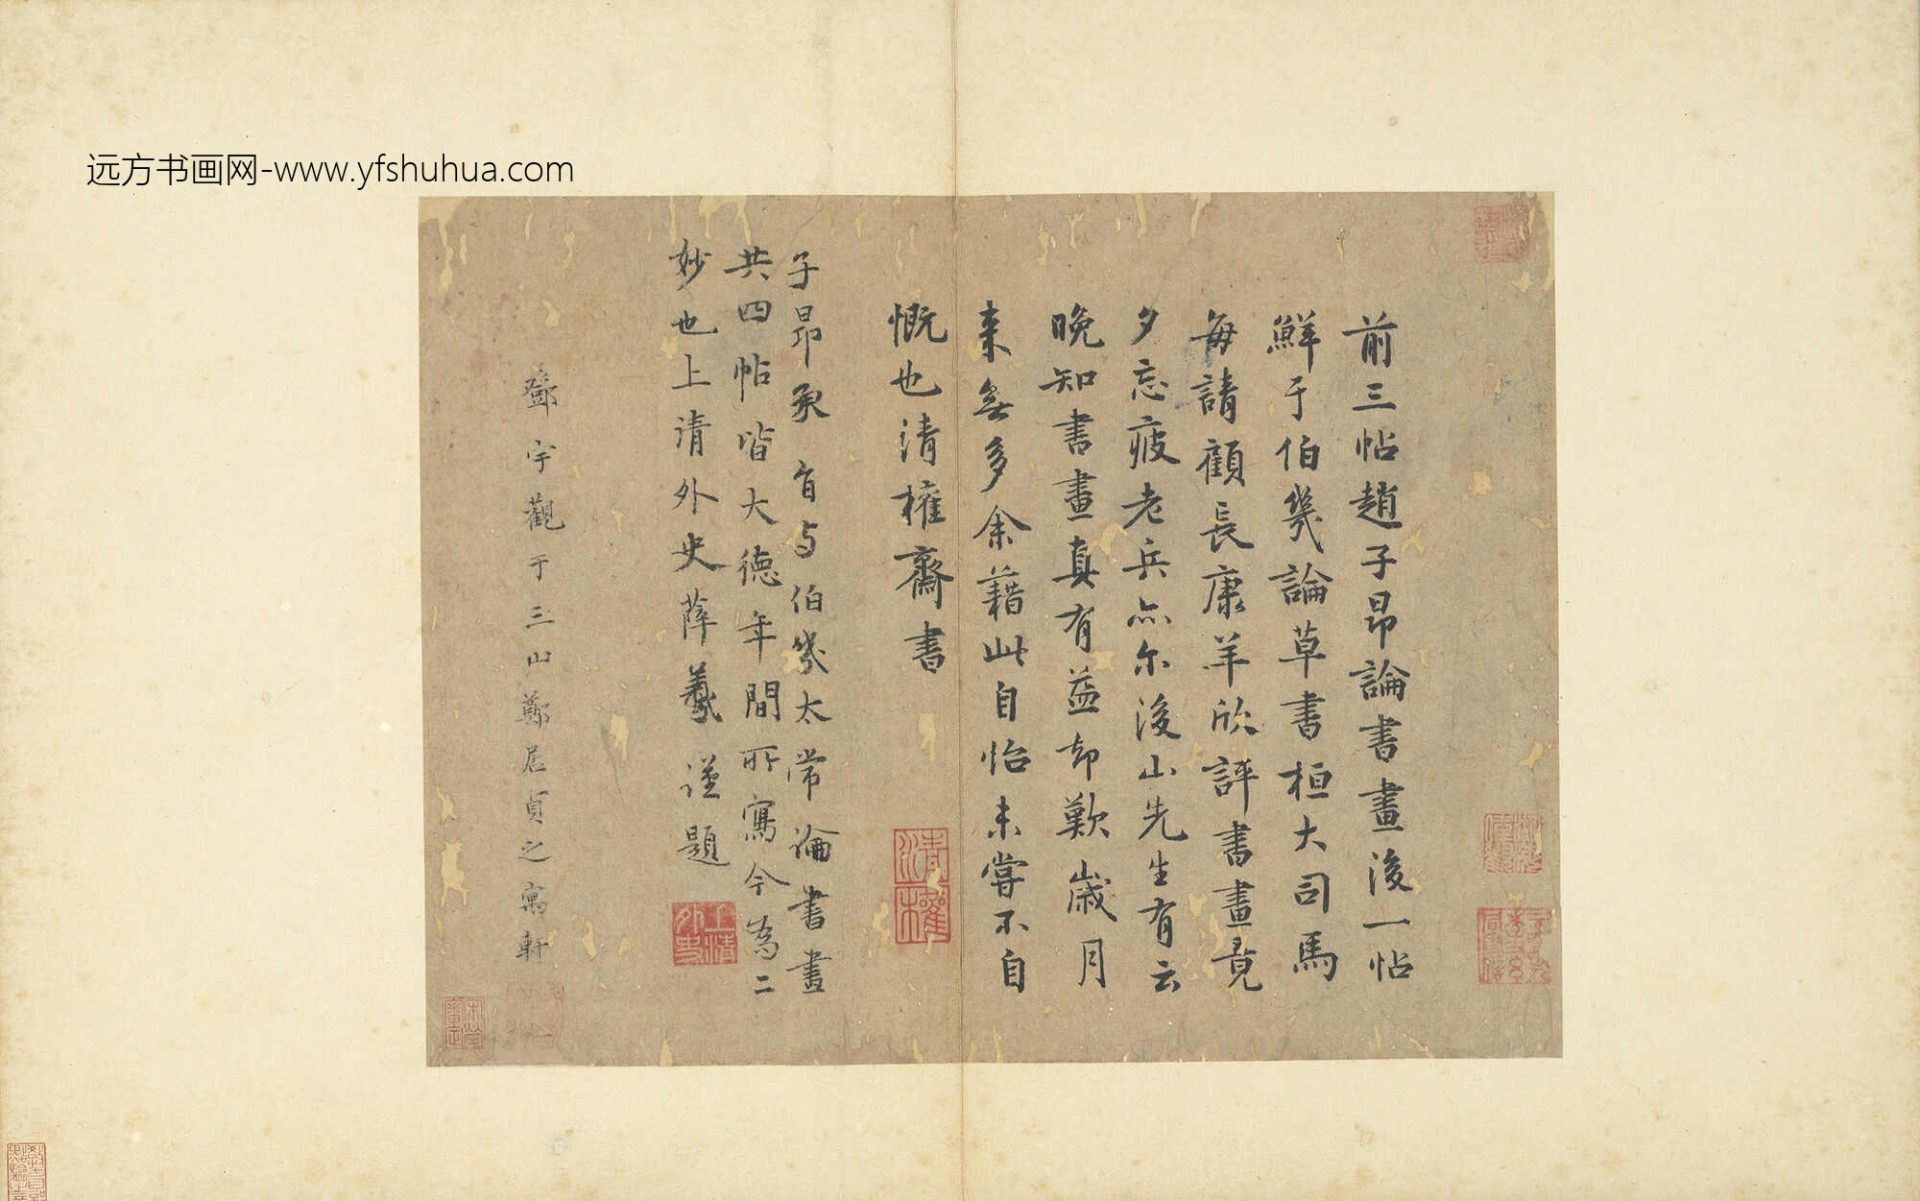 远方书画网-www.yfshuhua.com
前三帖趙子昂論書畫後一帖
鮮于伯幾論草書桓大司馬
每請顧長康羊欣評書畫竟
夕忘疲老兵亦尔後山先生有云
晚知書畫真有益却歎歲月
来無多余藉此自怡未嘗不自
慨也清權齋書
清權
子昂承旨与伯幾太常論書畫
共四帖皆大德年間所寫今為二
妙也上清外史薛羲謹題
上清外史
鄧宇觀于三山鄭居貞之寓軒